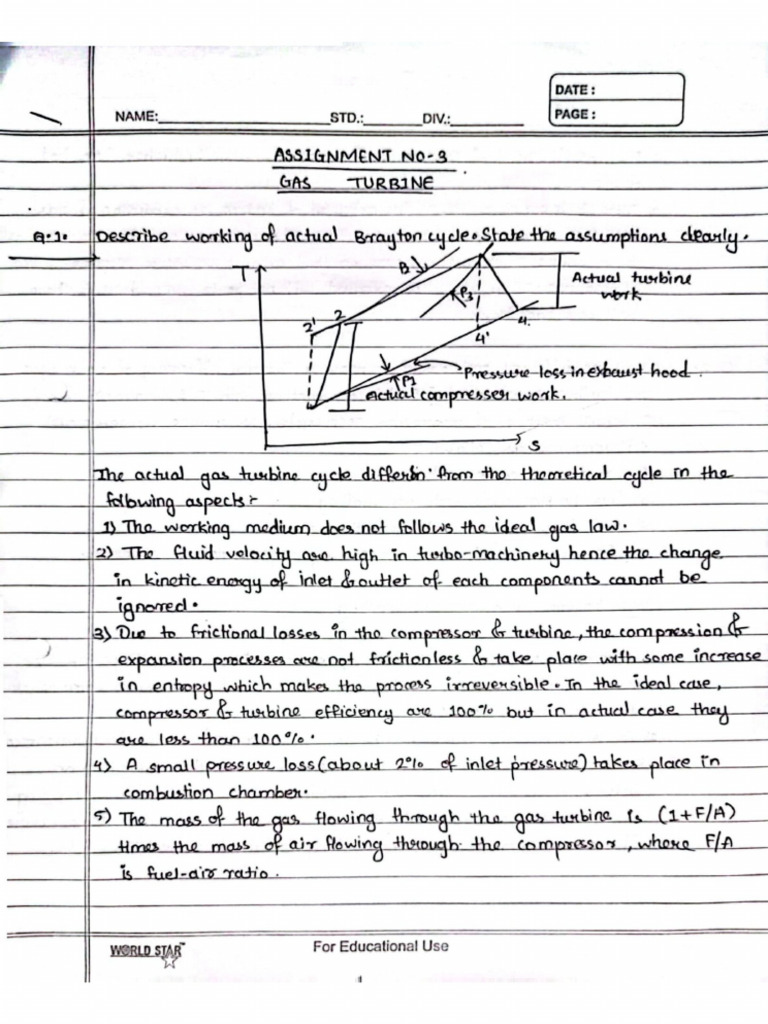 DATE :
NAME:____________________STD.:________DIV.:__________ PAGE :
ASSIGNMENT NO-3
GAS TURBINE
Q.1. Describe working of actual Brayton cycle. State the assumptions clearly.
T
B
Actual turbine
work
P3
2
2'
4
4'
Pressure loss in exhaust hood.
P1
Actual compresser work.
S
The actual gas turbine cycle differin from the theoretical cycle in the
following aspects:-
1) The working medium does not follows the ideal gas law.
2) The fluid velocity are high in turbo-machinery hence the change
in kinetic energy of inlet & outlet of each components cannot be
ignored.
3) Due to frictional losses in the compressor & turbine, the compression &
expansion processes are not frictionless & take place with some increase
in entropy which makes the process irreversible. In the ideal case,
compressor & turbine efficiency are 100% but in actual case they
are less than 100%.
4) A small pressure loss (about 2% of inlet pressure) takes place in
combustion chamber.
5) The mass of the gas flowing through the gas turbine is (1+F/A)
times the mass of air flowing through the compressor, where F/A
is fuel-air ratio.
WORLD STAR™
For Educational Use